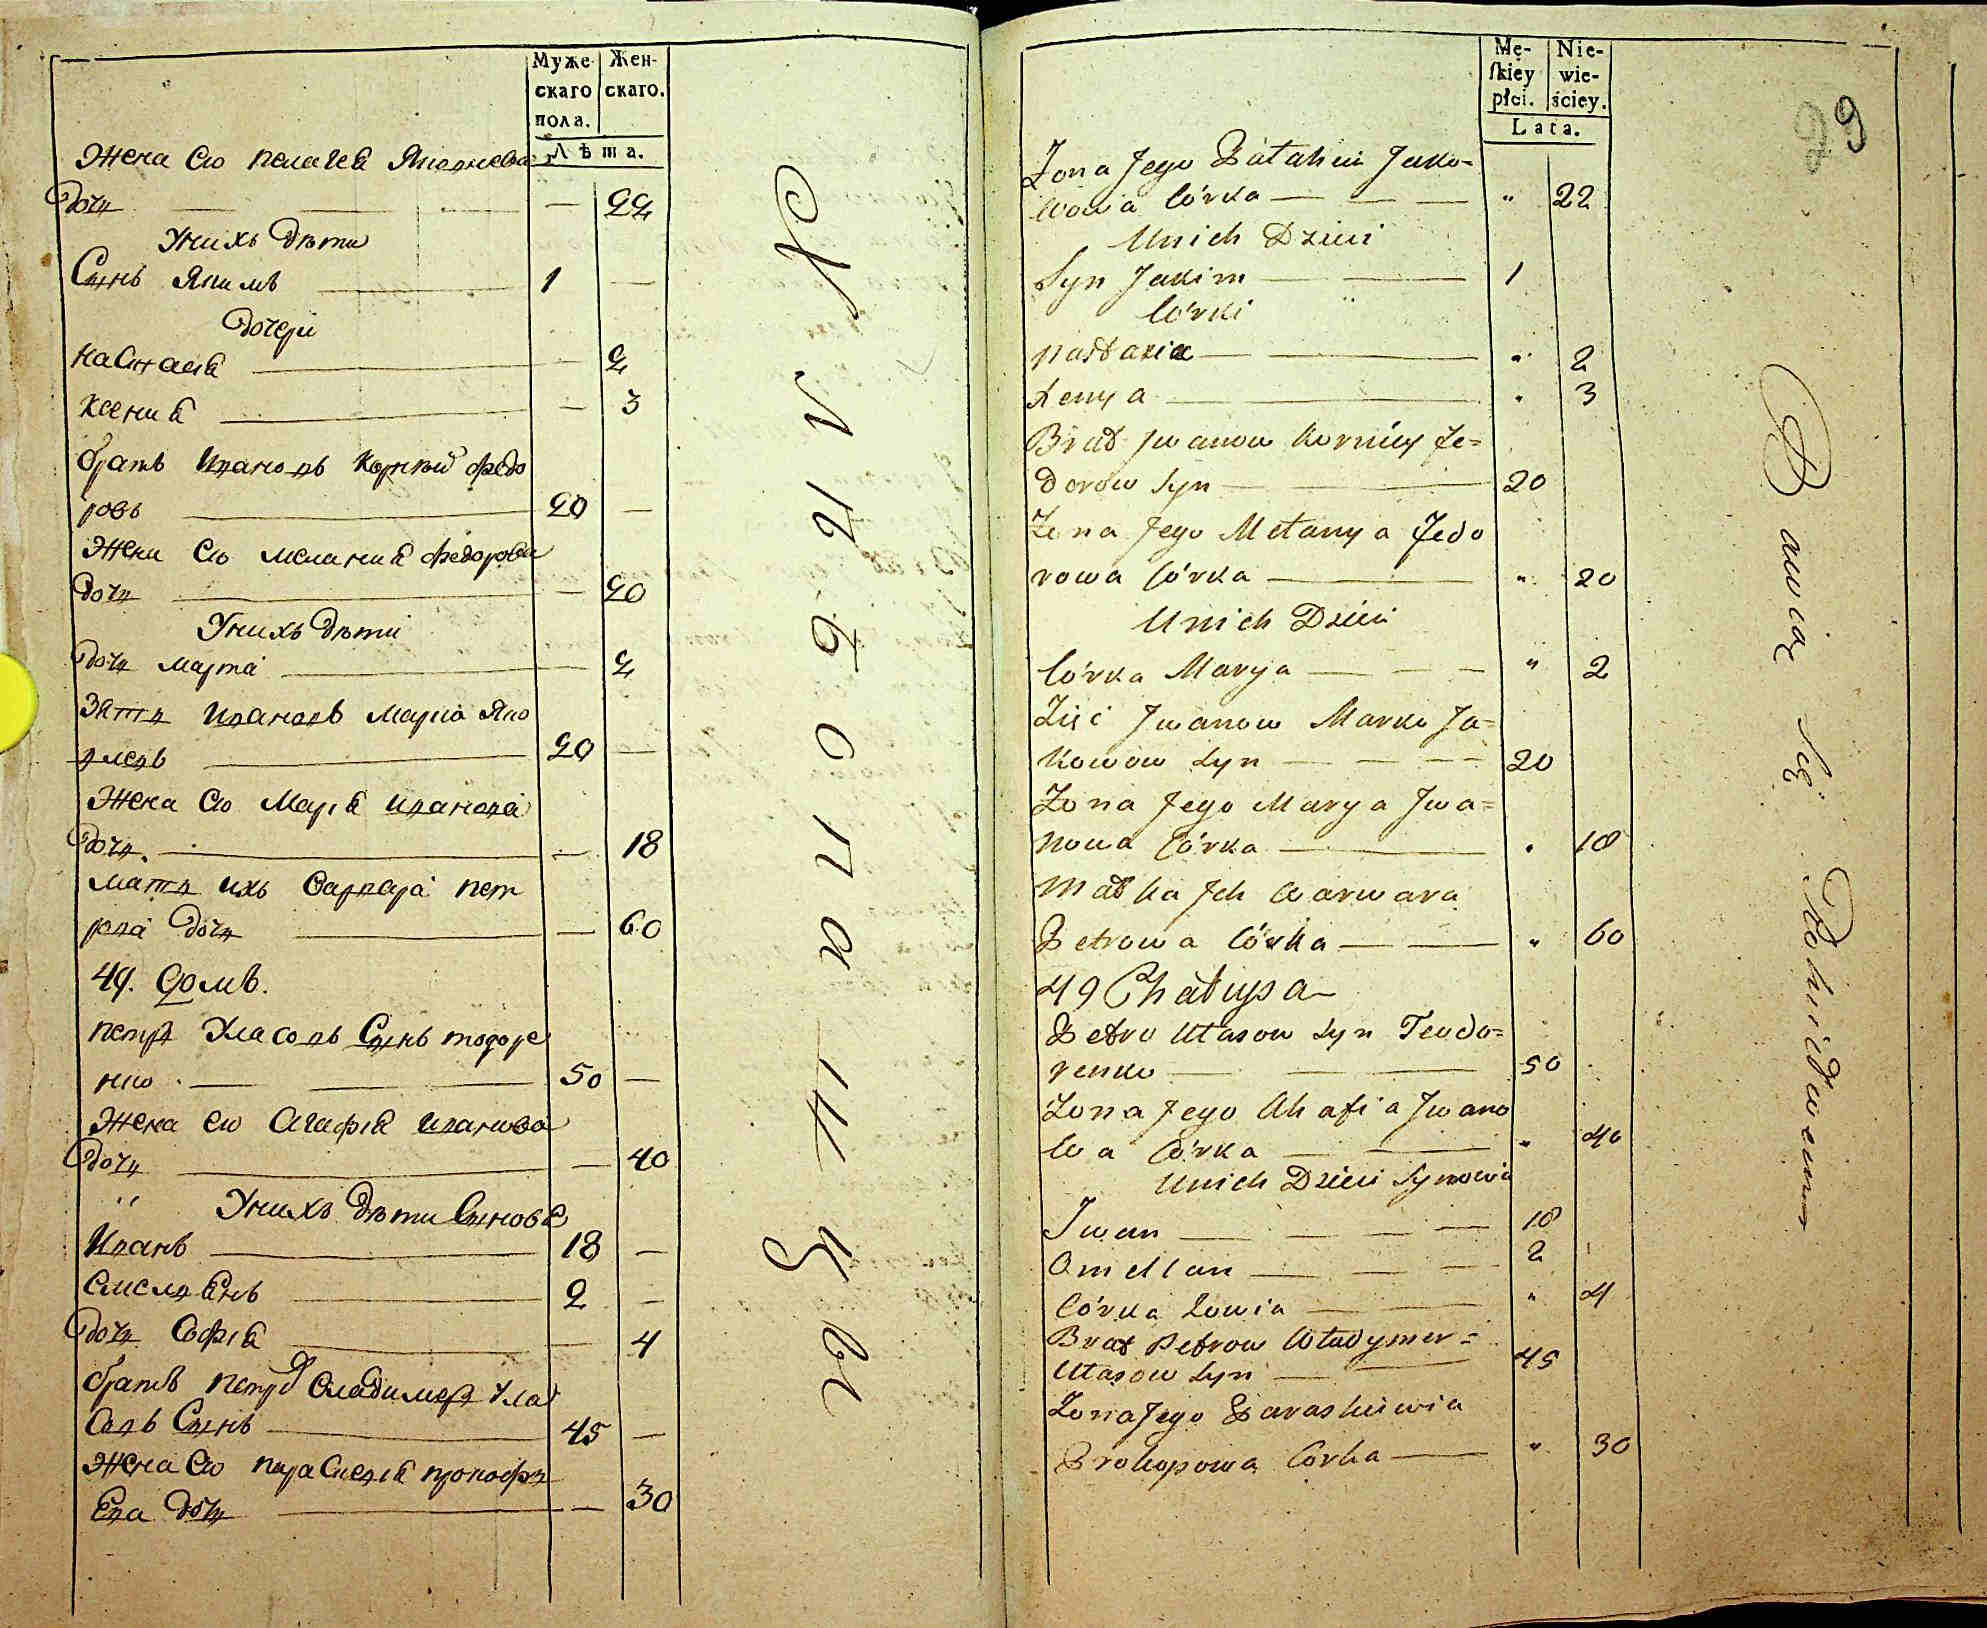 Муже-
скаго
пола.
Жен-
скаго.
Лѣта.
Жена его пелагея Яковлева
дочь — — — — 22
У нихъ дѣти
Сынъ Якимъ — 1 —
дочери
настасія — — 2
ксенія — — 3
братъ Ивановъ Корній федо
ровъ — 20 —
Жена его меланія федорова
дочь — — 20
У нихъ дѣти
дочь марта — — 2
Зять Ивановъ Марко Яко
влевъ — 20 —
Жена его Марія иванова
дочь. — — 18
мать ихъ варвара пет
рова дочь — — 60
49. домъ.
петръ Уласовъ Сынъ тодоре
нко — — 50 —
Жена его Агафія иванова
дочь — — 40
У нихъ дѣти Сыновя
Иванъ — 18 —
Емельянъ — 2 —
дочь Софія — — 4
братъ петра владимеръ Ула
совъ Сынъ — 45 —
Жена его параскевія прокофь
ева дочь — — 30
Mę-
skiey
płci.
Nie-
wie-
ściey.
Lata.
29
Zona Jego Pałahia Jako=
wowa Córka — — — " 22
U nich Dzieci
Syn Jakim — — 1
Córki
Nastazia — — " 2
Xenya — — " 3
Brat Jwanow Korniey Fe=
dorow Syn — — 20
Zona Jego Mełanya Fedo
rowa Córka — — " 20
U nich Dzieci
Córka Marya — — — " 2
Zięć Jwanow Marko Ja=
kowow Syn — — — 20
Zona Jego Marya Jwa=
nowa Córka — " 18
Matka Jch Warwara
Petrowa Córka — — " 60
49 Chałupa
Petro Ułasow Syn Teodo=
renko — — — 50
Zona Jego Ahafia Jwano
wa Córka — — " 40
U nich Dzieci Synowie
Jwan — — — — 18
Omelian — — — 2
Córka Zowia — — — " 4
Brat Petrow Władymer=
Ułasow Syn — — 45
Zona Jego Paraskiewia
Prokopowa Córka — " 30